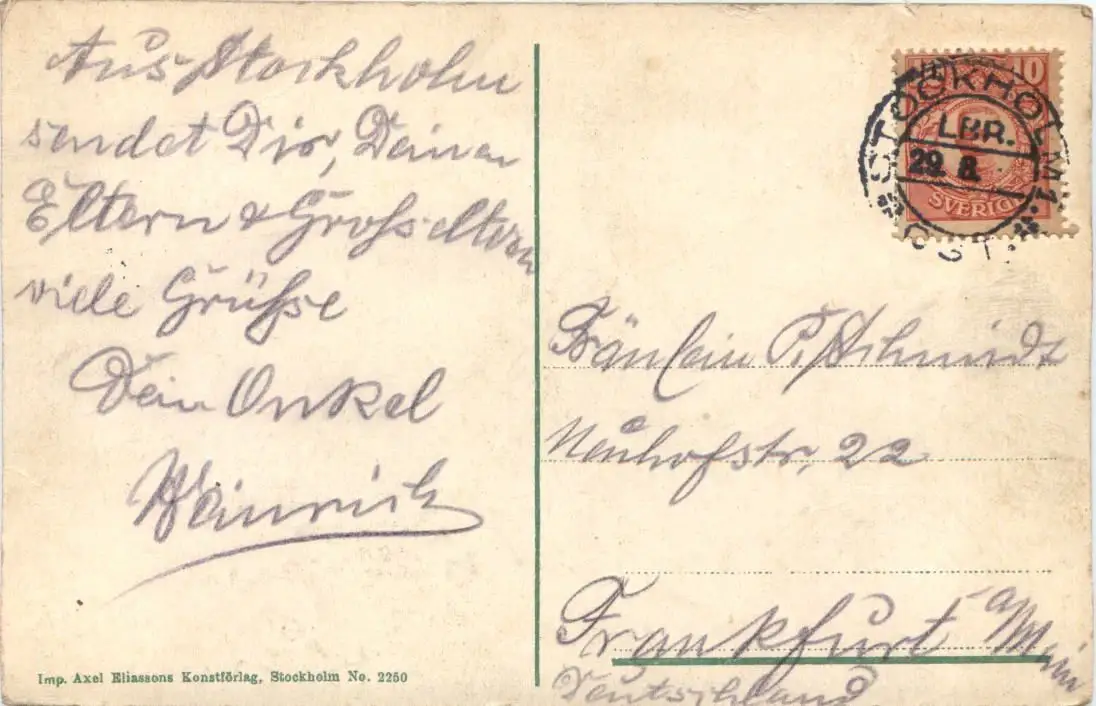 Aus Stockholm
sendet Dir, Deinen
Eltern & Grosseltern
viele Grüsse
Dein Onkel
Heinrich
Imp. Axel Eliassons Konstförlag, Stockholm No. 2250
10 10
SVERIGE
STOCKHOLM 1
LBR.
29. 8.
ÖST.
Fräulein P. Schmidt
Neuhofstr. 22
Frankfurt a/Main
Deutschland